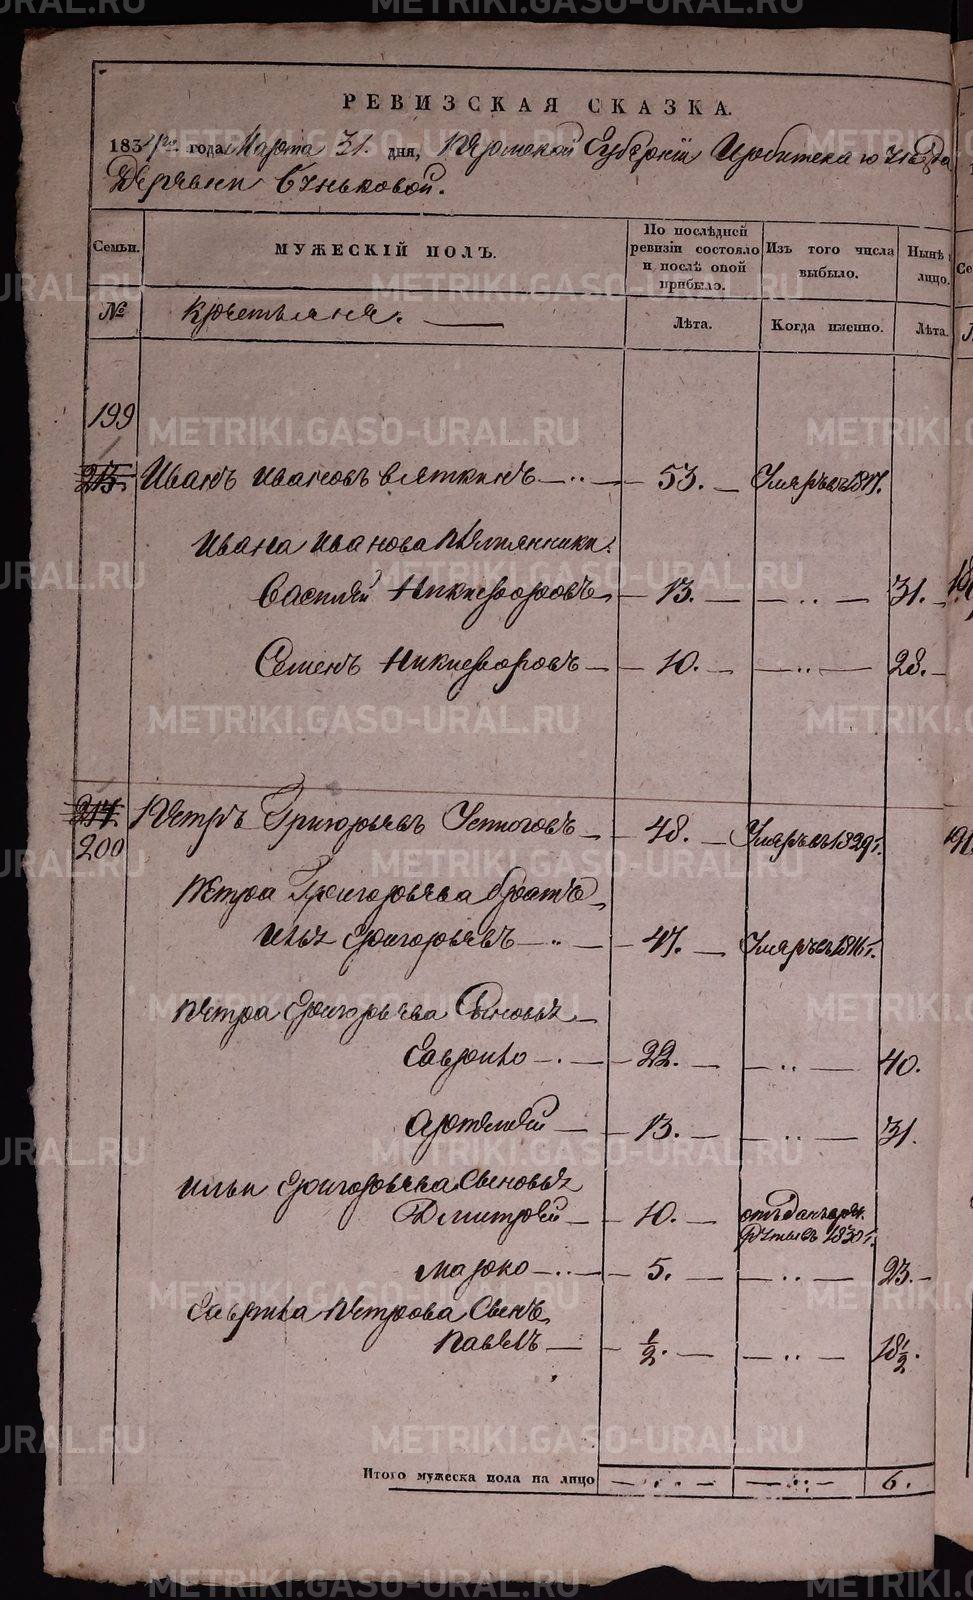 РЕВИЗСКАЯ СКАЗКА.
1834го года Марта 31. дня, Пермской Губернiи Ирбитскаго уезда
Деревни Буньковой.
Семьи.
МУЖЕСКIЙ ПОЛЪ.
По послѣдней ревизiи состояло и послѣ оной прибыло.
Изъ того числа выбыло.
Нынѣ
лицо.
№
Крестьяне.
Лѣта.
Когда именно.
Лѣта.
199
215. Иванъ Ивановъ Вяткинъ 53. Умеръ въ 1817.
Ивана Иванова племянники:
Василей Никифоровъ 13. 31.
Семенъ Никифоровъ 10. 28.
217. Петръ Григорьевъ Устюговъ 48. Умеръ въ 1829 г.
200
Петра Григорьева братъ
Илья Григорьевъ 47. Умеръ въ 1816 г.
Петра Григорьева Сыновья
Гаврило 22. 40.
Артемей 13. 31.
Ильи Григорьева Сыновья
Дмитрей 10. отъданъ в ре
круты въ 1830 г.
Марко 5. 23.
Гаврила Петрова Сынъ
Павелъ 1/2. 18 1/2.
Итого мужеска пола на лицо 6.
METRIKI.GASO-URAL.RU